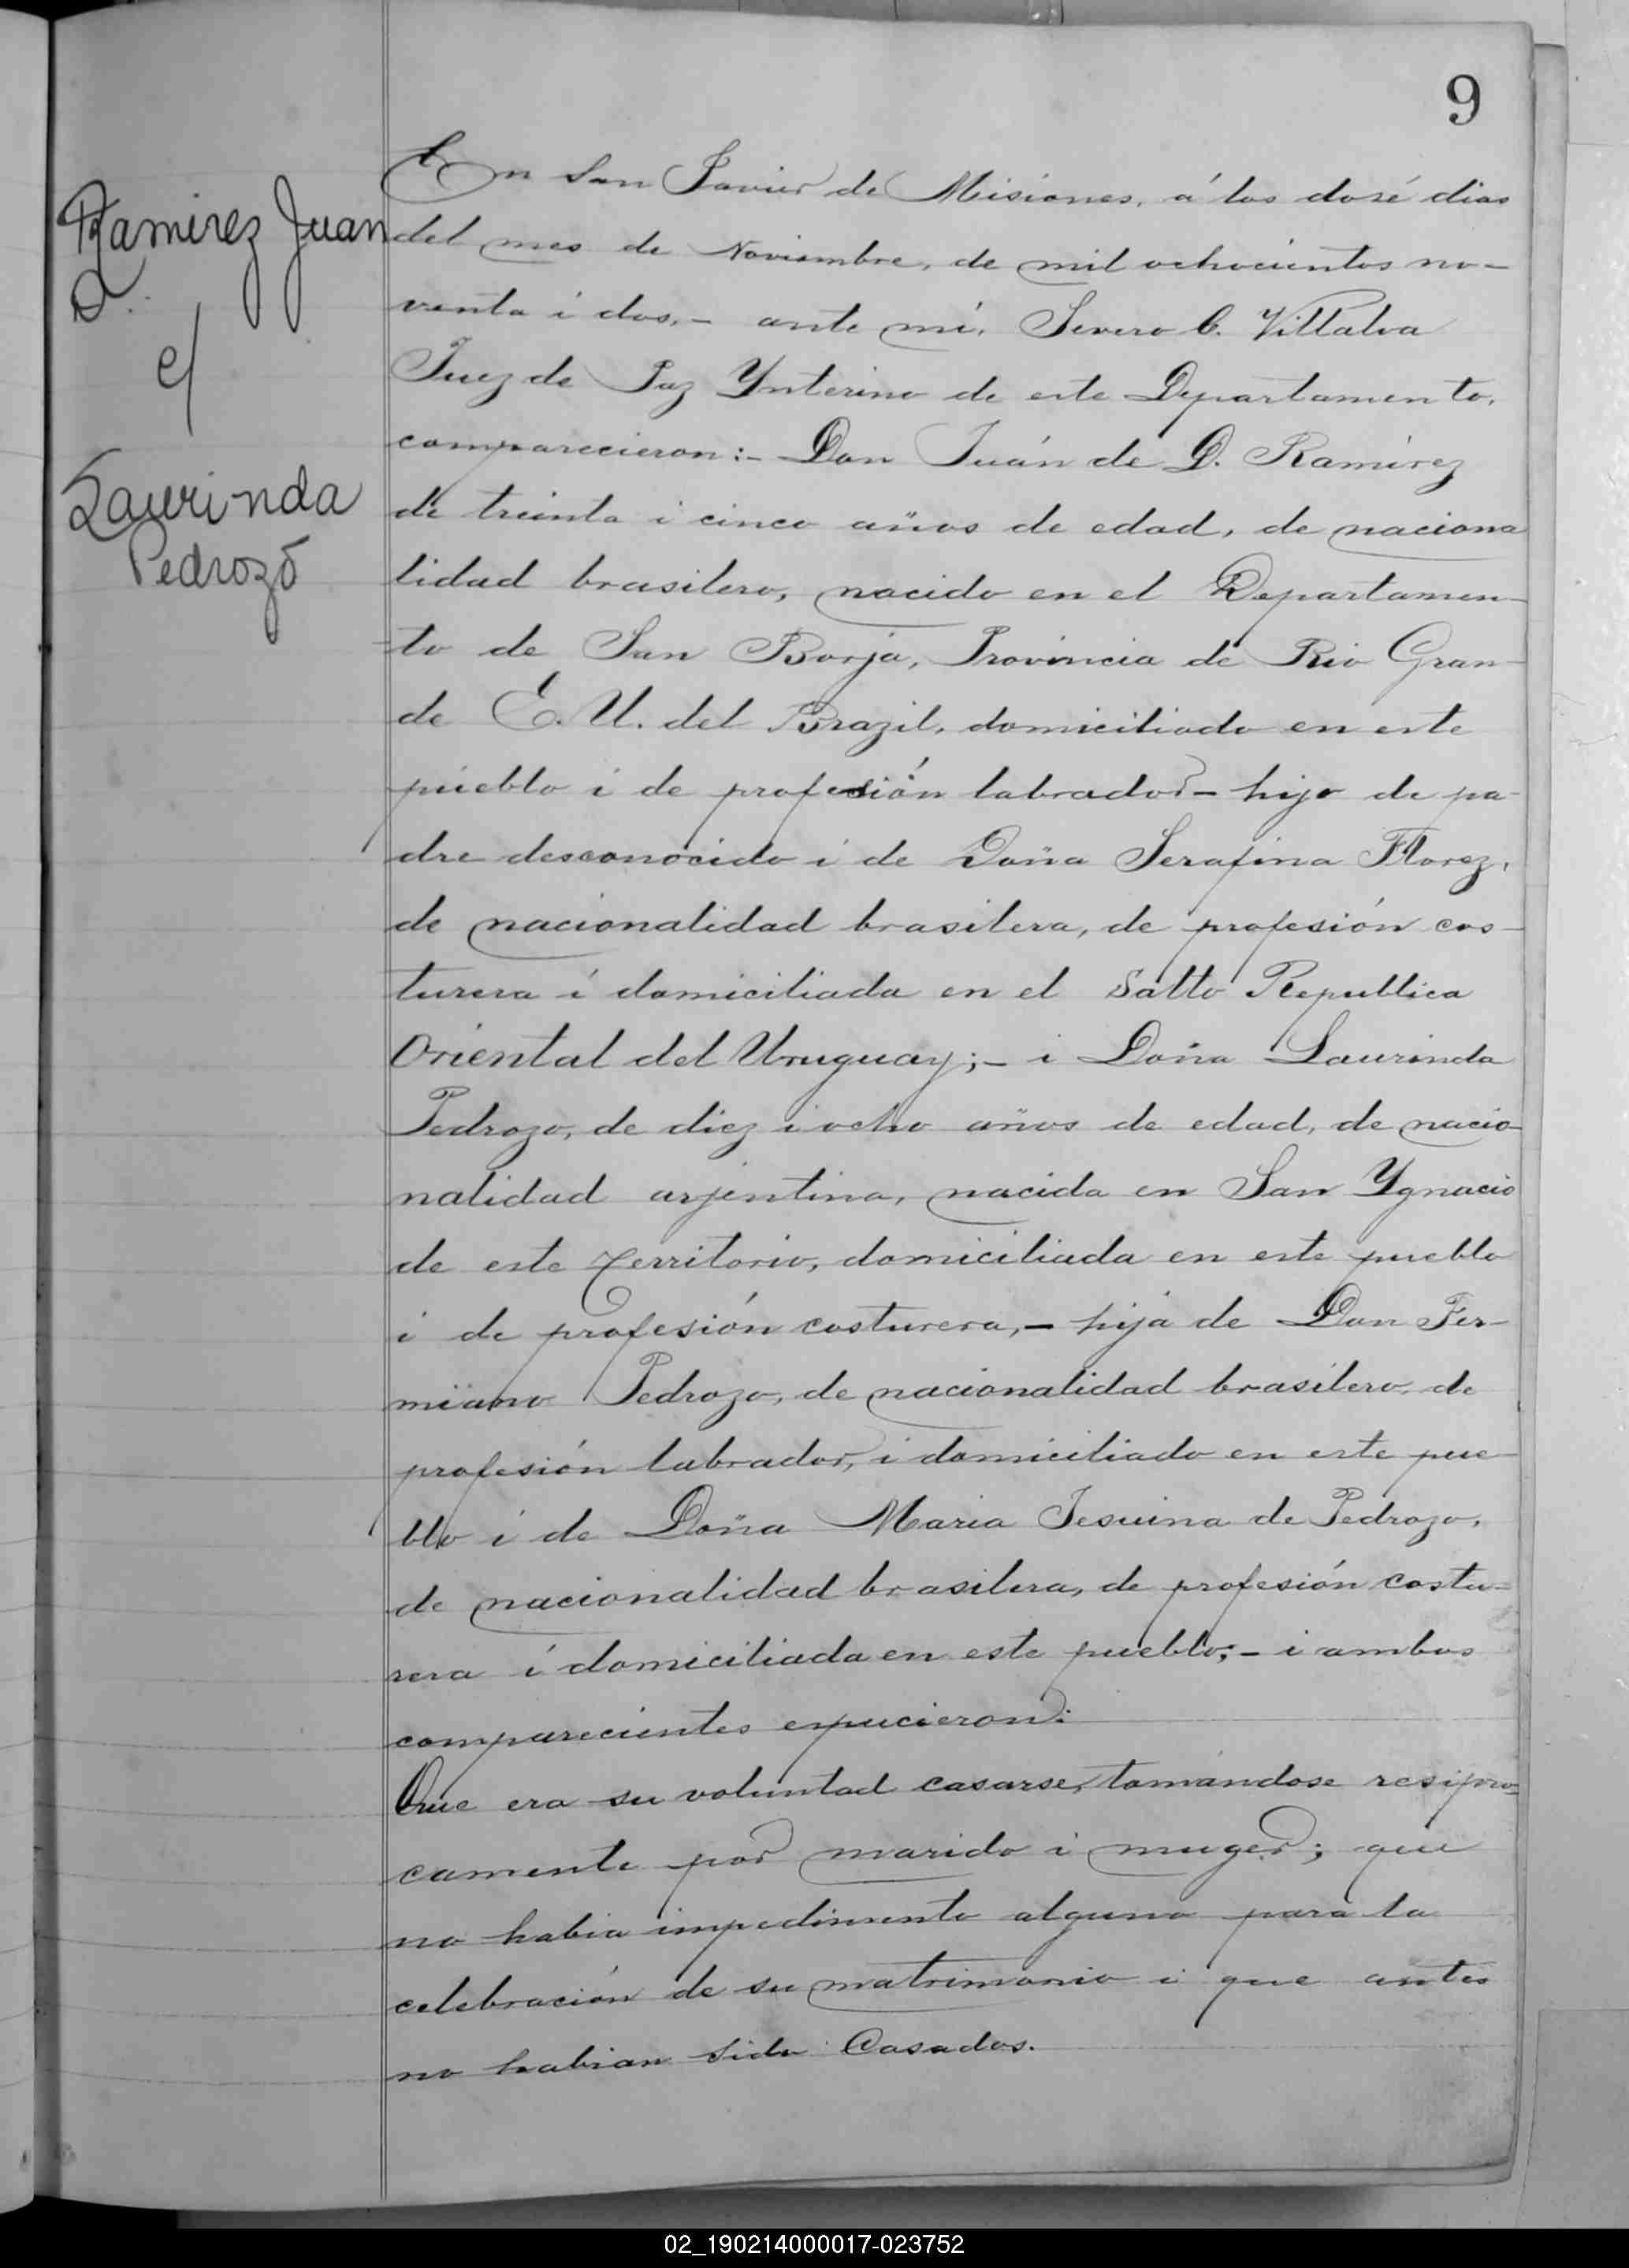 9
Ramirez Juan
D.
c/
Laurinda
Pedrozo
En San Javier de Misiones, á los dosé dias
del mes de Noviembre, de mil ochocientos no-
venta i dos,- ante mí, Severo C. Villalva
Juez de Paz Ynterino de este Departamento,
comparecieron:- Don Juán de D. Ramírez
de treinta i cinco años de edad, de naciona
lidad brasilero, nacido en el Departamen-
to de San Borja, Provincia de Rio Gran-
de E. U. del Brazil, domiciliado en este
pueblo i de profesión labrador- hijo de pa-
dre desconocido i de Doña Serafina Florez,
de nacionalidad brasilera, de profesión cos-
turera i domiciliada en el Salto Republica
Oriental del Uruguay;- i Doña Laurinda
Pedrozo, de diez i ocho años de edad, de nacio-
nalidad arjentina, nacida en San Ygnacio
de este Territorio, domiciliada en este pueblo
i de profesión costurera,- hija de Don Fer-
miano Pedrozo, de nacionalidad brasilero, de
profesión labrador, i domiciliado en este pue-
blo i de Doña Maria Jesuina de Pedrozo,
de nacionalidad brasilera, de profesión costu-
rera i domiciliada en este pueblo;- i ambos
comparecientes espucieron:
Que era su voluntad casarse, tomándose resipro-
camente por marido i muger; que
no habia impedimento alguno para la
celebración de su matrimonio i que antes
no habian sido Casados.
02_190214000017-023752